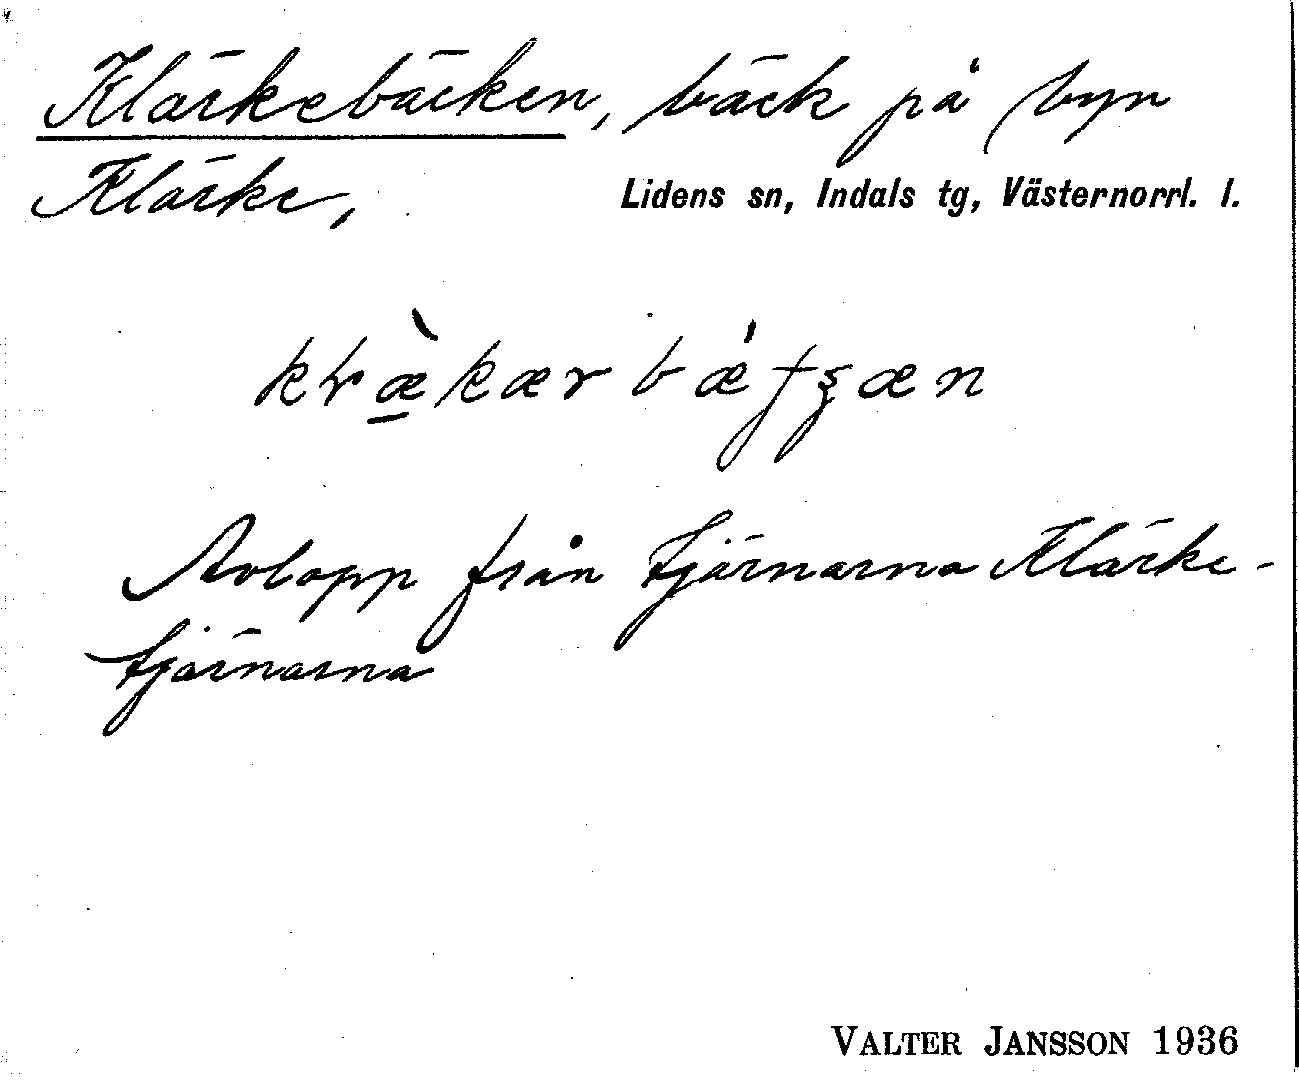 Klärkebäcken, bäck på byn
Klärke,
Lidens sn, Indals tg, Västernorrl. l.
Avlopp från tjärnarna Klärke-
tjärnarna
VALTER JANSSON 1936